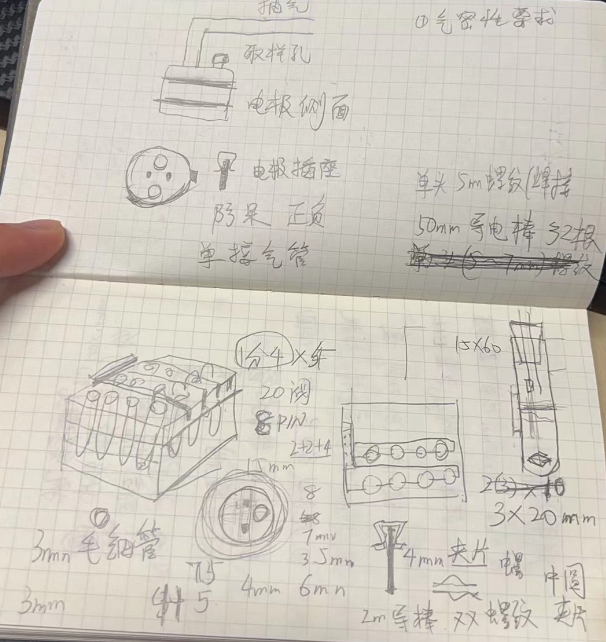 抽气
①气密性要求
取样孔
电极侧面
电极插座
阴呆 正负
单接气管
单头 5m 螺纹/焊接
50mm 导电棒 各2根
1分4×年
20阀
8 PIN
2+2+4
15mm
15×60
8
7mm
3.5mm
4mm 6mm
3mm 毛细管
75
5
3mm
3×20mm
4mm 夹片
螺 中圆
2m 导棒 XX 螺纹 夹片